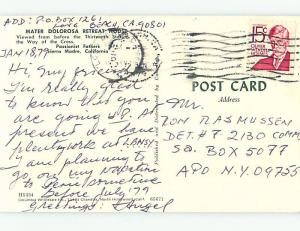 ADD: P.O. BOX 1261
Long Beach, CA. 90801
MATER DOLOROSA RETREAT HOUSE
Viewed from before the Thirteenth Station
the Way of the Cross.
Passionist Fathers
Sierra Madre, California
JAN 18, 79
Hi, my friend
I'm really glad
to know that you
are going up. At
present we have
plenty work at
and planning to
go, on my vacation
to sometime
Before July '79
Greetings: Angel
H8434
65671
15c
POST CARD
Address
Mr.
RON RASMUSSEN
DET. #7 2130 COMM
SQ. BOX 5077
APO N.Y. 09755